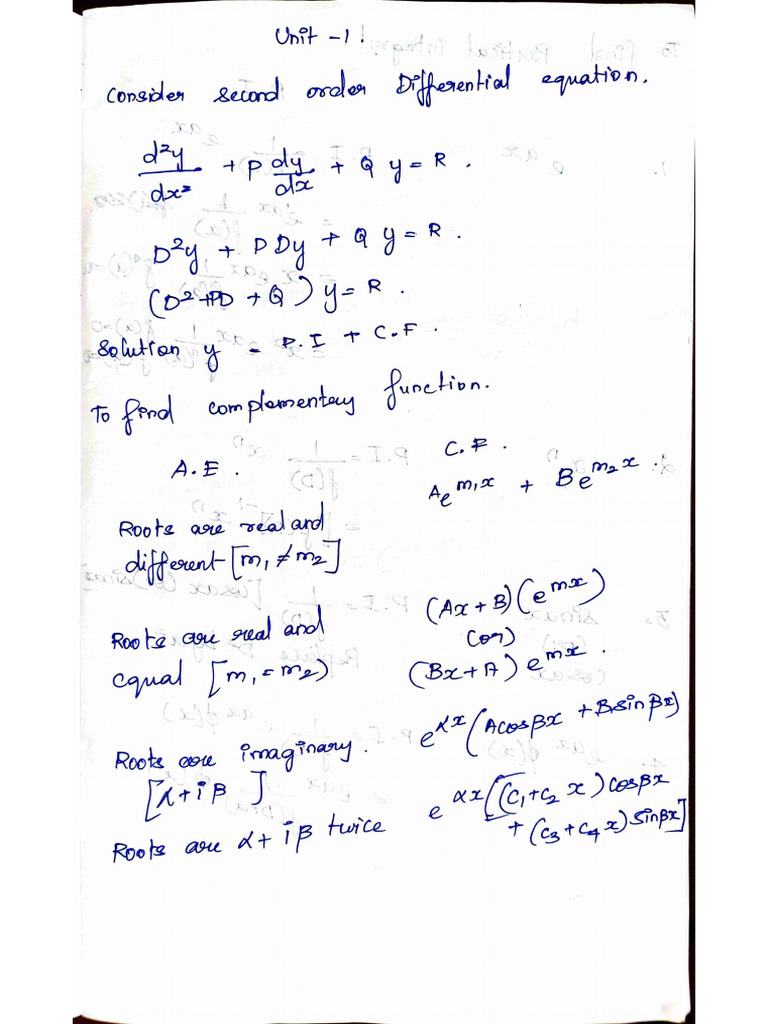 Unit - 1!
Consider second order Differential equation.
d²y/dx² + P dy/dx + Q y = R .
D²y + PDy + Q y = R .
(D² + PD + Q) y = R .
Solution y = P.I + C.F .
To find complementary function.
A.E . C.F .
Ae^m₁x + Be^m₂x .
Roots are real and
different [m₁ ≠ m₂]
(Ax + B)(e^mx)
Roots are real and (or)
equal [m₁ = m₂) (Bx + A) e^mx .
Roots are imaginary. e^αx (A cosβx + B sinβx)
[α + iβ]
Roots are α + iβ twice e^αx [(C₁ + C₂ x) cosβx
+ (C₃ + C₄x) sinβx]